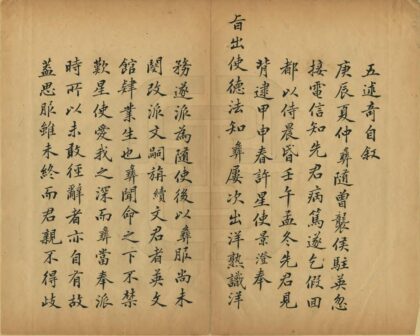 五述奇自叙
庚辰夏仲彝隨曾襲侯駐英忽
接電信知先君病篤遂乞假回
都以侍晨昏壬午孟冬先君見
背逮甲申春許星使景澄奉
旨出使德法知彝屢次出洋熟識洋
務遂派為隨使後以彝服尚未
闋改派文嗣稱續文君者英文
館肄業生也彝聞命之下不禁
歎星使愛我之深而彝當奉派
時所以未敢徑辭者亦自有故
蓋思服雖未終而君親不得歧